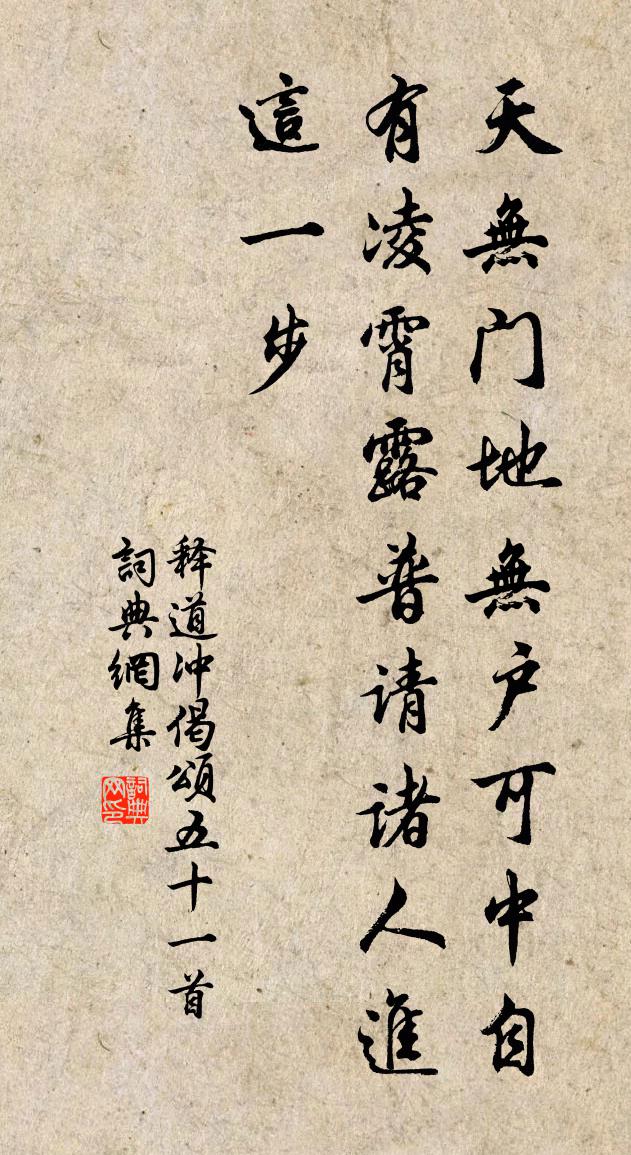 天無门地無户可中自
有凌霄露普请诸人進
這一步
释道冲偈頌五十一首
詞典網集
詞典网印